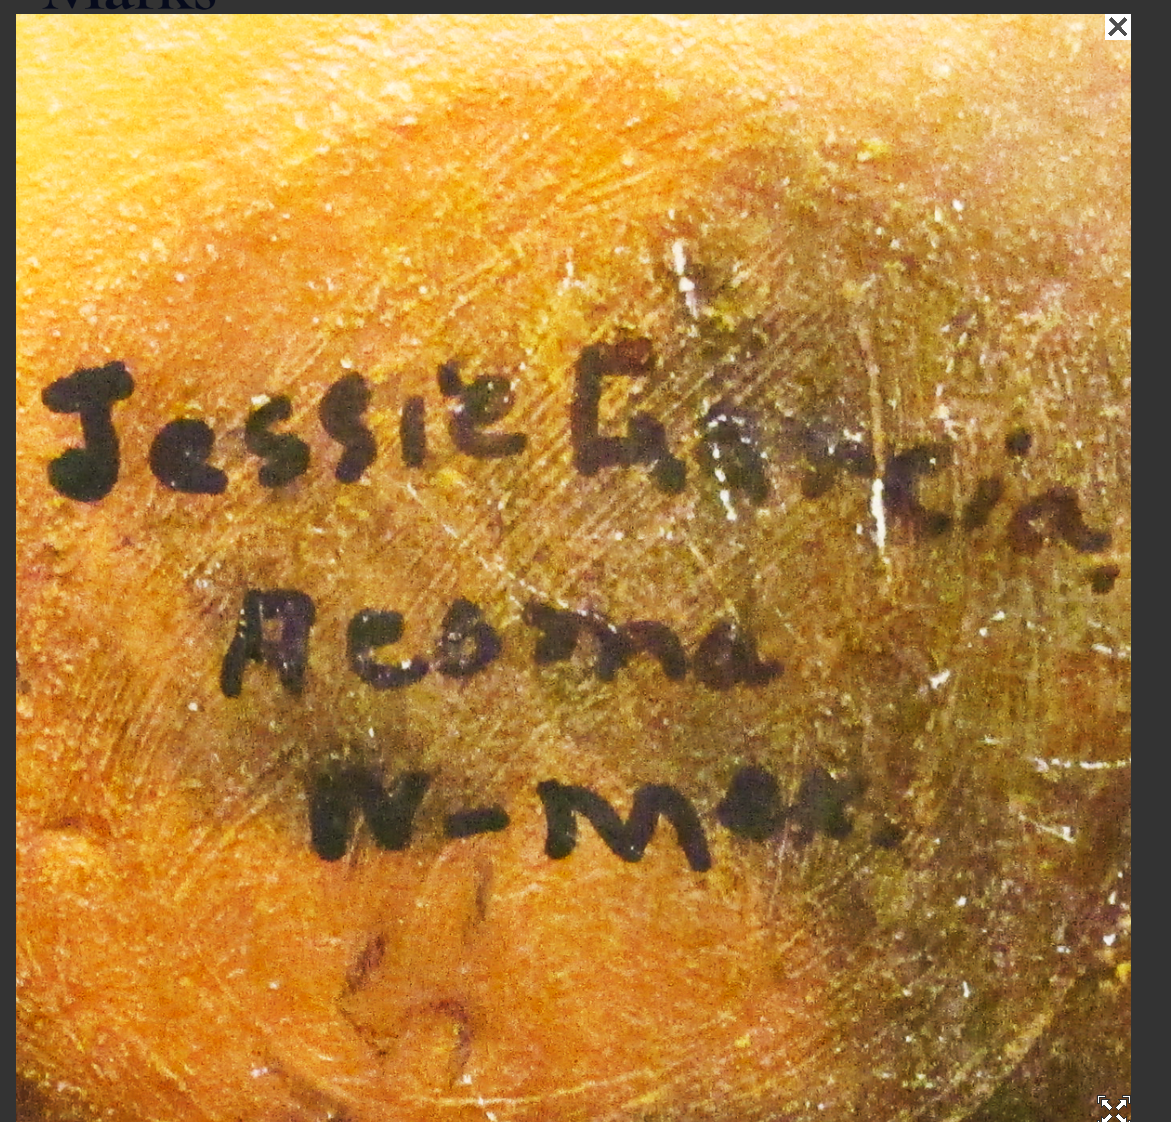 Marks
Jessie Garcia.
Acoma
N-Mex.